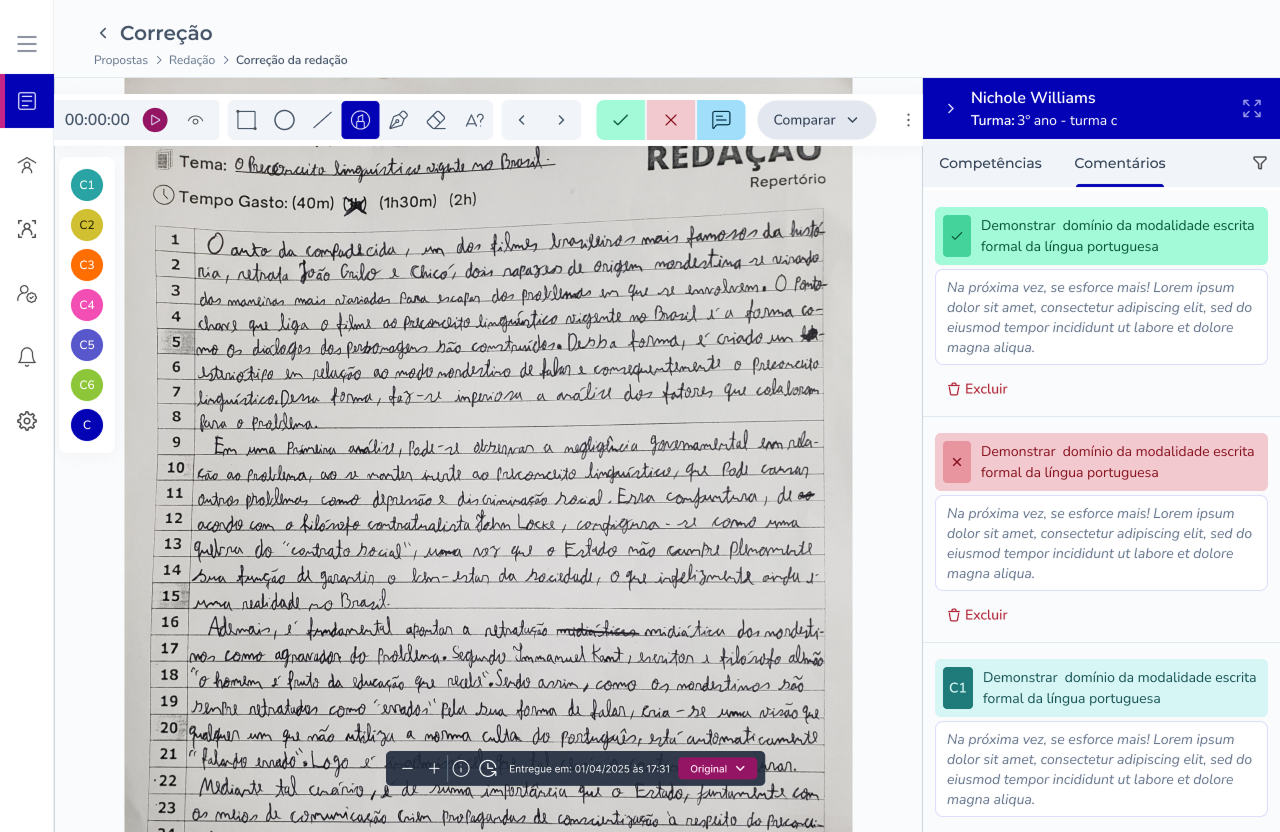 Correção
Propostas > Redação > Correção da redação
00:00:00
A?
Comparar
Nichole Williams
Turma: 3º ano - turma c
Competências
Comentários
C1
C2
C3
C4
C5
C6
C
Tema: O Preconceito linguístico vigente no Brasil.
REDAÇÃO
Repertório
Tempo Gasto: (40m) (1h) (1h30m) (2h)
1 O auto da compadecida, um dos filmes brasileiros mais famosos da histó-
2 ria, retrata João Grilo e Chicó, dois rapazes de origem nordestina se virando
3 das maneiras mais variadas para escapar dos problemas em que se envolvem. O Ponto-
4 chave que liga o filme ao preconceito linguístico vigente no Brasil é a forma co-
5 mo os diálogos dos personagens são construídos. Dessa forma, é criado um
6 esteriótipo em relação ao modo nordestino de falar e consequentemente o preconceito
7 linguístico. Dessa forma, faz-se imperiosa a análise dos fatores que colaboram
8 para o problema.
9 Em uma Primeira análise, Pode-se observar a negligência governamental em rela-
10 ção ao Problema, ao se manter inerte ao Preconceito linguístico, que Pode causar
11 outros problemas como depressão e discriminação social. Essa conjuntura, de
12 acordo com o filósofo contratualista John Locke, configura-se como uma
13 quebra do "contrato social", uma vez que o Estado não cumpre plenamente
14 sua função de garantir o bem-estar da sociedade, o que infelizmente ainda é
15 uma realidade no Brasil.
16 Ademais, é fundamental apontar a retratação midiática dos nordesti-
17 nos como agravador do Problema. Segundo Immanuel Kant, escritor e filósofo alemão
18 "o homem é fruto da educação que recebe". Sendo assim, como os nordestinos são
19 sempre retratados como "errados" Pela sua forma de falar, cria-se uma visão que
20 qualquer um que não utiliza a norma culta do português, está automaticamente
21 "falando errado". Logo é
22 Mediante tal cenário, é de suma importância que o Estado, juntamente com
23 os meios de comunicação criem propagandas de conscientização à respeito do preconcei-
Entregue em: 01/04/2025 às 17:31
Original
Demonstrar domínio da modalidade escrita
formal da língua portuguesa
Na próxima vez, se esforce mais! Lorem ipsum
dolor sit amet, consectetur adipiscing elit, sed do
eiusmod tempor incididunt ut labore et dolore
magna aliqua.
Excluir
Demonstrar domínio da modalidade escrita
formal da língua portuguesa
Na próxima vez, se esforce mais! Lorem ipsum
dolor sit amet, consectetur adipiscing elit, sed do
eiusmod tempor incididunt ut labore et dolore
magna aliqua.
Excluir
C1
Demonstrar domínio da modalidade escrita
formal da língua portuguesa
Na próxima vez, se esforce mais! Lorem ipsum
dolor sit amet, consectetur adipiscing elit, sed do
eiusmod tempor incididunt ut labore et dolore
magna aliqua.